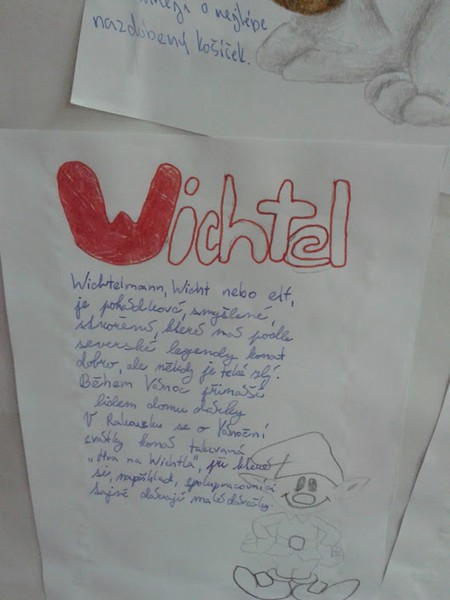 o nejlépe
nazdobený košíček.
Wichtel
Wichtelmann, Wicht nebo elf,
je pohádková, smyšlené,
stvoření, které má podle
severské legendy konat
dobro, ale někdy je také zlý.
Během Vánoc přináší
lidem domů dárky
V Rakousku se o Vánoční
svátky koná takzvaná
„Hra na Wichtla", při které
si, například, spolupracovníci
tajně dávají malé dárečky.